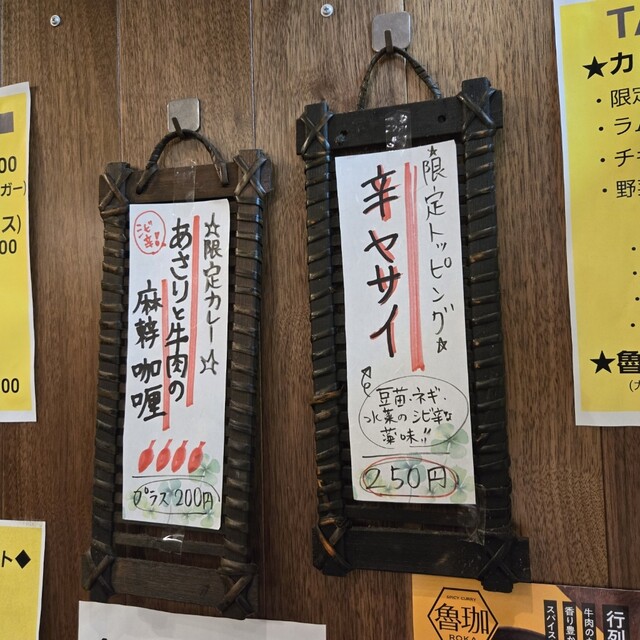 ☆限定カレー☆
シビ辛!!
あさりと牛肉の
麻辣咖喱
プラス200円
☆限定トッピング☆
辛ヤサイ
豆苗・ネギ・
水菜のシビ辛な
薬味!!
250円
00
ガー)
ス)
00
00
ト◆
TA
★カ
・限定
・ラム
・チキ
・野菜
★魯
SPICY CURRY
魯珈
ROKA
行列
牛肉の
香り豊
スパイス